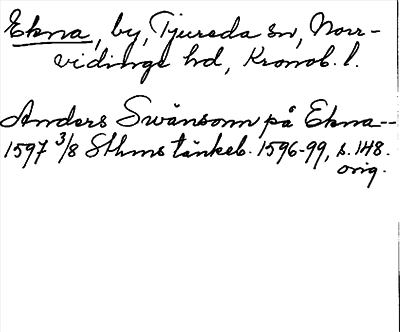 Ekna, by, Tjureda sn, Norr-
vidinge hd, Kronob. l.
Anders Swänsonn på Ekna--
1597 3/8 Sthms tänkeb. 1596-99, s. 148.
orig.